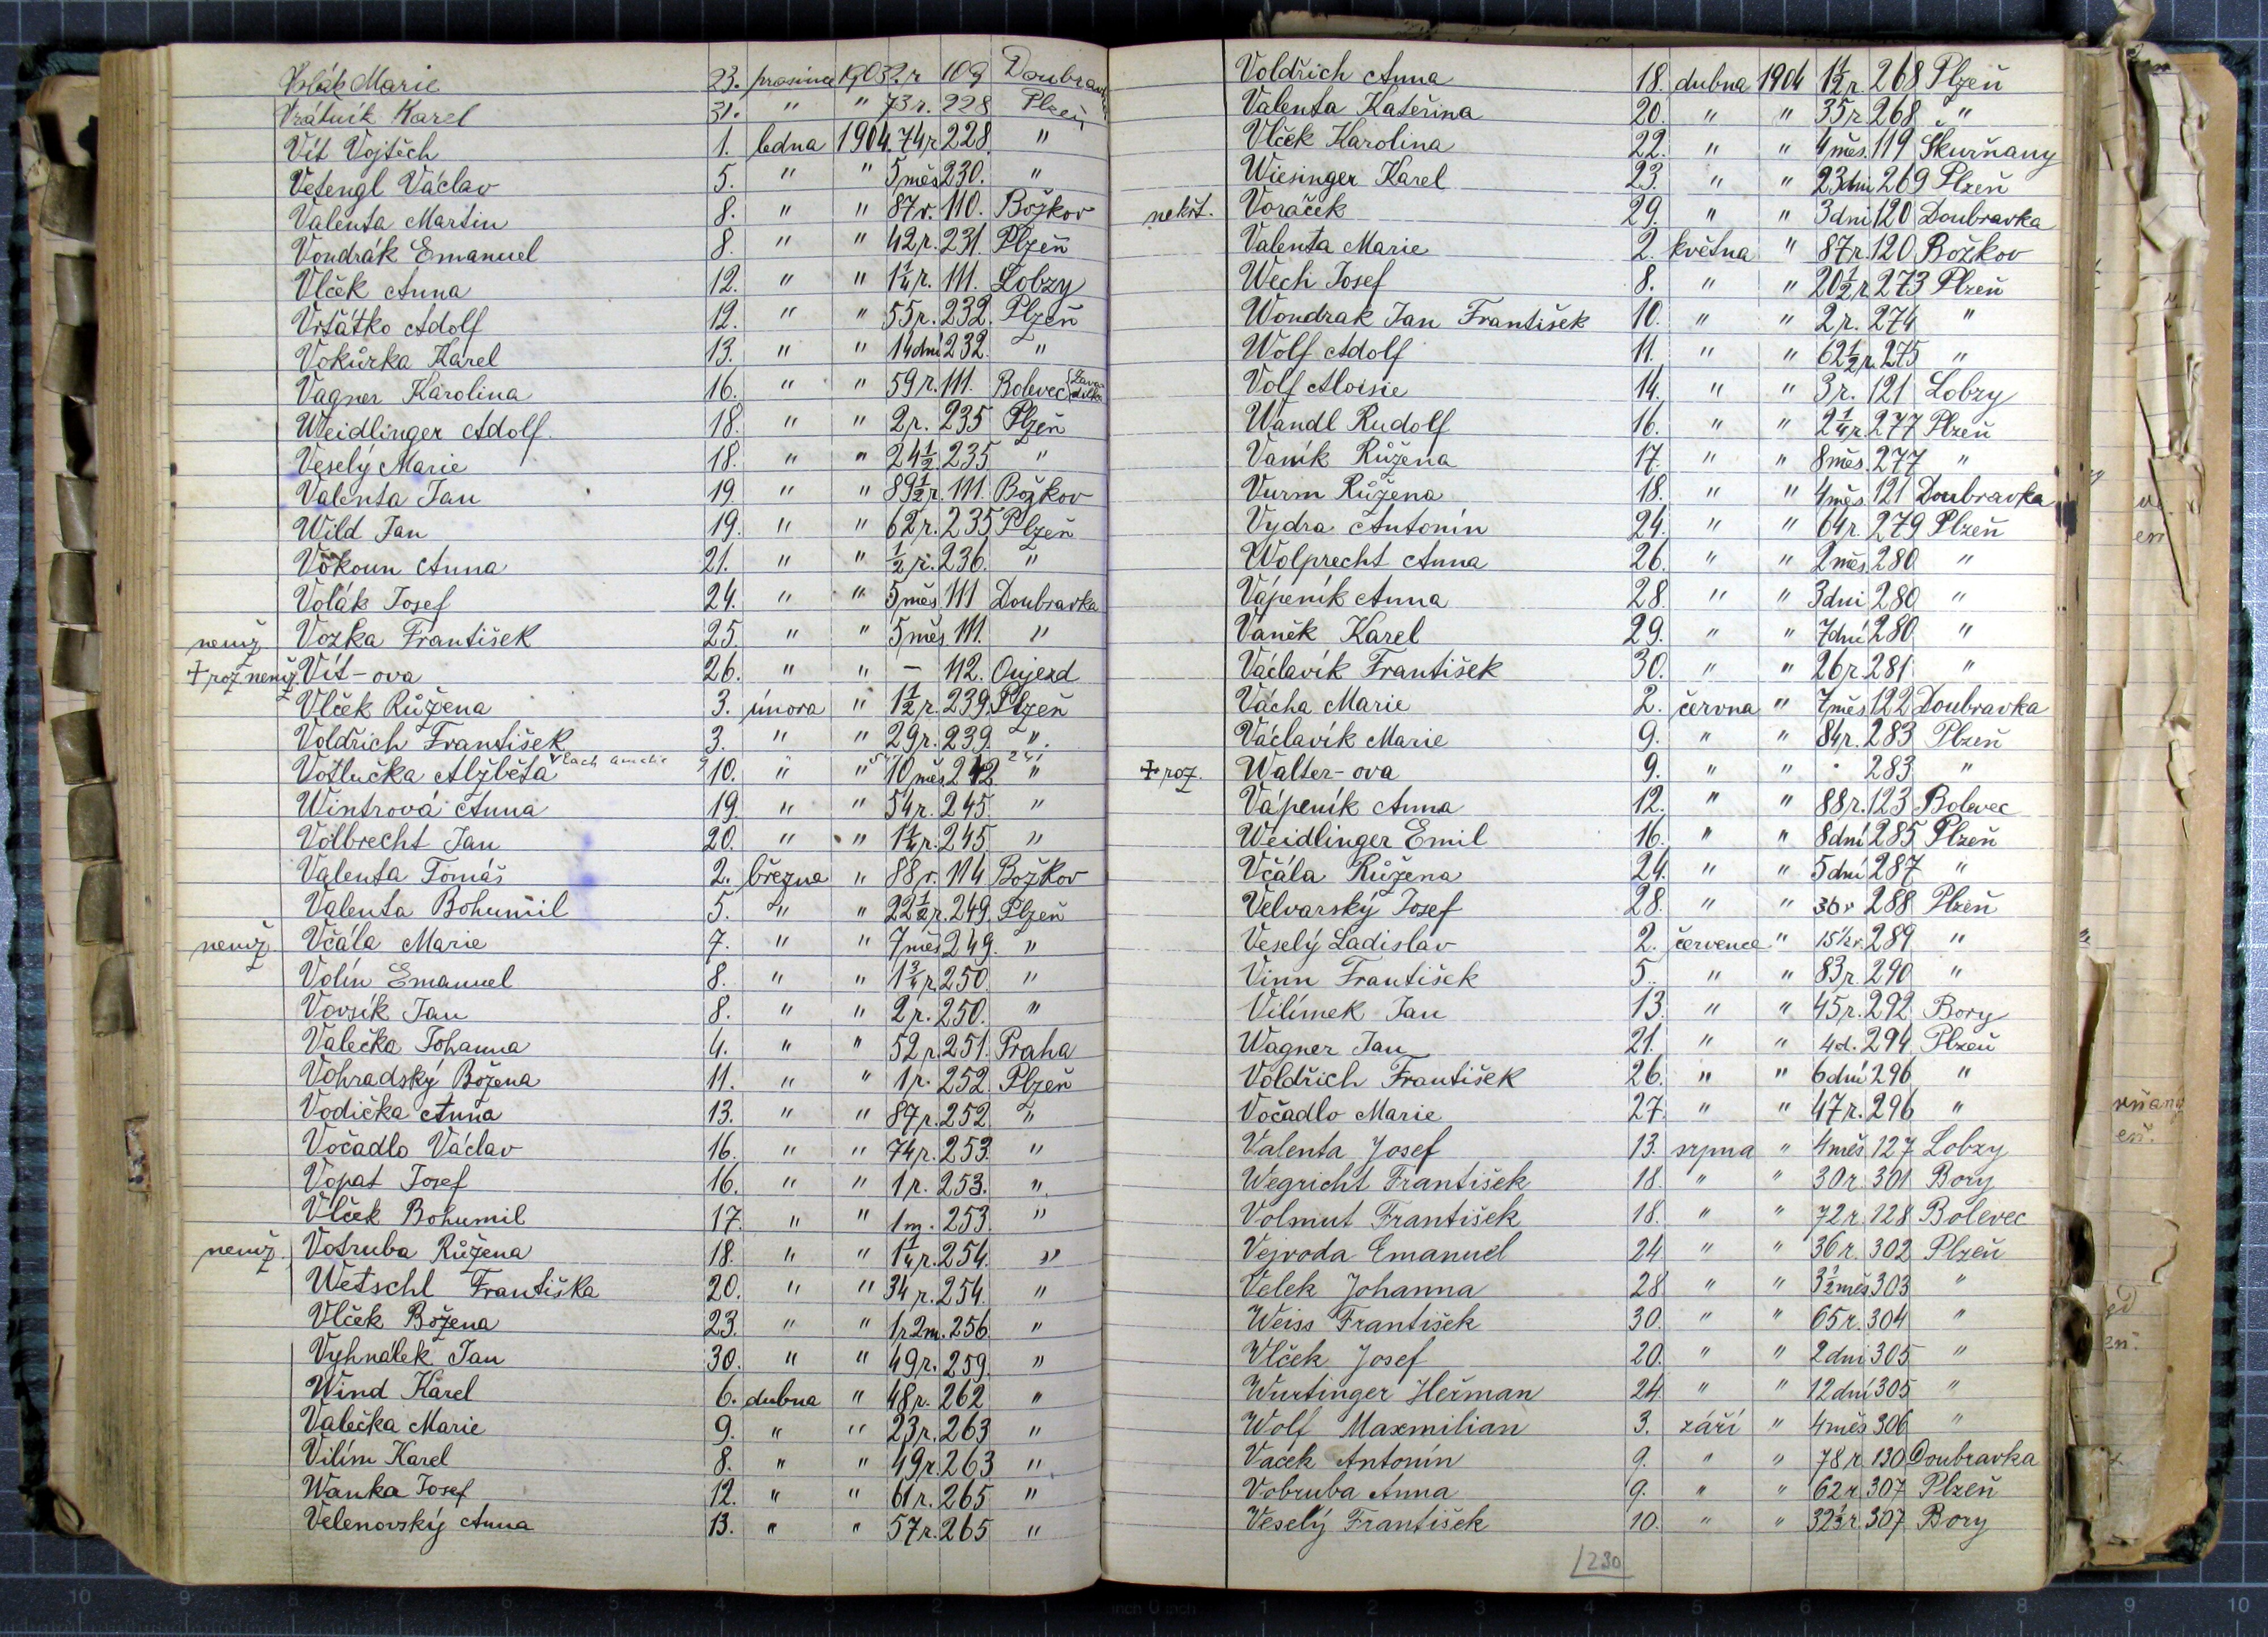 Volák Marie 23. prosince 1903 2. r 109 Doubravka
Vrátník Karel 31. " " 73 r. 228 Plzeň
Vít Vojtěch 1. ledna 1904. 74 r 228. "
Vetengl Václav 5. " " 5 měs 230. "
Valenta Martin 8. " " 87 r. 110. Božkov
Vondrák Emanuel 8. " " 42 r. 231. Plzeň
Vlček Anna 12. " " 1 1/4 r. 111. Lobzy
Vršátko Adolf 12. " " 55 r. 232. Plzeň
Vokůrka Karel 13. " " 14 dní 232. "
Vagner Karolina 16. " " 59 r. 111. Bolevec
Weidlinger Adolf. 18. " " 2 r. 235 Plzeň
Veselý Marie 18. " " 24 1/2 235 "
Valenta Jan 19. " " 89 1/2 r. 111. Božkov
Wild Jan 19. " " 62 r. 235 Plzeň
Vokoun Anna 21. " " 1/2 r. 236. "
Volák Josef 24. " " 5 měs 111 Doubravka
nemž Vozka František 25. " " 5 měs 111. "
+ roz. nemž. Vít-ova 26. " " — 112. Oujezd
Vlček Růžena 3. února " 1 1/2 r. 239. Plzeň
Voldřich František 3. " " 29 r. 239. ".
Vlach Amalie 241
Votlučka Alžběta 10. " " 10 měs 242 "
Wintrová Anna 19. " " 54 r. 245. "
Volbrecht Jan 20. " " 1 1/4 r. 245 "
Valenta Tomáš 2. března " 88 r. 114 Božkov
Valenta Bohumil 5. " " 22 1/2 r. 249. Plzeň
nemž. Včála Marie 7. " " 7 měs 249. "
Volín Emanuel 8. " " 1 3/4 r. 250. "
Vovsík Jan 8. " " 2 r. 250. "
Valečka Johanna 4. " " 52 r. 251. Praha
Vohradský Božena 11. " " 1 r. 252 Plzeň
Vodička Anna 13. " " 87 r. 252 "
Vočadlo Václav 16. " " 74 r. 253. "
Vopat Josef 16. " " 1 r. 253. ".
Vlček Bohumil 17. " " 1 m. 253. "
nemž. Votruba Růžena 18. " " 1 1/4 r. 254. "
Wetschl Františka 20. " " 34 r. 254. "
Vlček Božena 23. " " 1 r 2 m. 256 "
Vyhnálek Jan 30. " " 49 r. 259. "
Wind Karel 6. dubna " 48 r. 262 "
Valečka Marie 9. " " 23 r. 263 "
Vilím Karel 8. " " 49 r. 263 "
Wanka Josef 12. " " 61 r. 265 "
Velenovský Anna 13. " " 57 r. 265 "
Voldřich Anna 18. dubna 1904 1 1/2 r. 268 Plzeň
Valenta Kateřina 20. " " 35 r. 268 "
Vlček Karolina 22. " " 4 měs. 119 Skurňany
Wiesinger Karel 23. " " 23 dní 269 Plzeň
nekřt. Voráček 29. " " 3 dní 120 Doubravka
Valenta Marie 2. května " 87 r. 120 Božkov
Wech Josef 8. " " 20 1/2 r 273 Plzeň
Wondrak Jan František 10. " " 2 r. 274 "
Wolf Adolf 11. " " 62 1/2 r. 275 "
Volf Aloisie 14. " " 3 r. 121 Lobzy
Wandl Rudolf 16. " " 2 1/4 r. 277 Plzeň
Vaník Růžena 17. " " 8 měs. 277 "
Vurm Růžena 18. " " 4 měs. 121 Doubravka
Vydra Antonín 24. " " 64 r. 279 Plzeň
Wolprecht Anna 26. " " 2 měs 280 "
Vápeník Anna 28. " " 3 dni 280 "
Vaněk Karel 29. " " 7 dní 280 "
Václavík František 30. " " 26 r. 281 "
Vácha Marie 2. června " 7 měs 122 Doubravka
Václavík Marie 9. " " 84 r. 283 Plzeň
+ roz. Walter-ova 9. " " 283 "
Vápeník Anna 12. " " 88 r. 123 Bolevec
Weidlinger Emil 16. " " 8 dní 285 Plzeň
Včála Růžena 24. " " 5 dní 287 "
Velvarský Josef 28. " " 36 r 288 Plzeň
Veselý Ladislav 2. července " 15 1/2 r. 289 "
Vinn František 5. " " 83 r. 290 "
Vilímek Jan 13. " " 45 r. 292 Bory
Wagner Jan 21. " " 4 d. 294 Plzeň
Voldřich František 26. " " 6 dní 296 "
Vočadlo Marie 27. " " 47 r. 296 "
Valenta Josef 13. srpna " 4 měs 127 Lobzy
Wegricht František 18. " " 30 r. 301 Bory
Volmut František 18. " " 72 r. 128 Bolevec
Vejvoda Emanuel 24 " " 36 r. 302 Plzeň
Velek Johanna 28 " " 3 1/2 měs 303 "
Weiss František 30. " " 65 r. 304 "
Vlček Josef 20. " " 2 dní 305 "
Wurtinger Heřman 24 " " 12 dní 305 "
Wolf Maxmilian 3. září " 4 měs 306 "
Vacek Antonín 9. " " 78 r. 130 Doubravka
Vobruba Anna 9. " " 62 r. 307 Plzeň
Veselý František 10. " " 32 1/2 r. 307 Bory
230